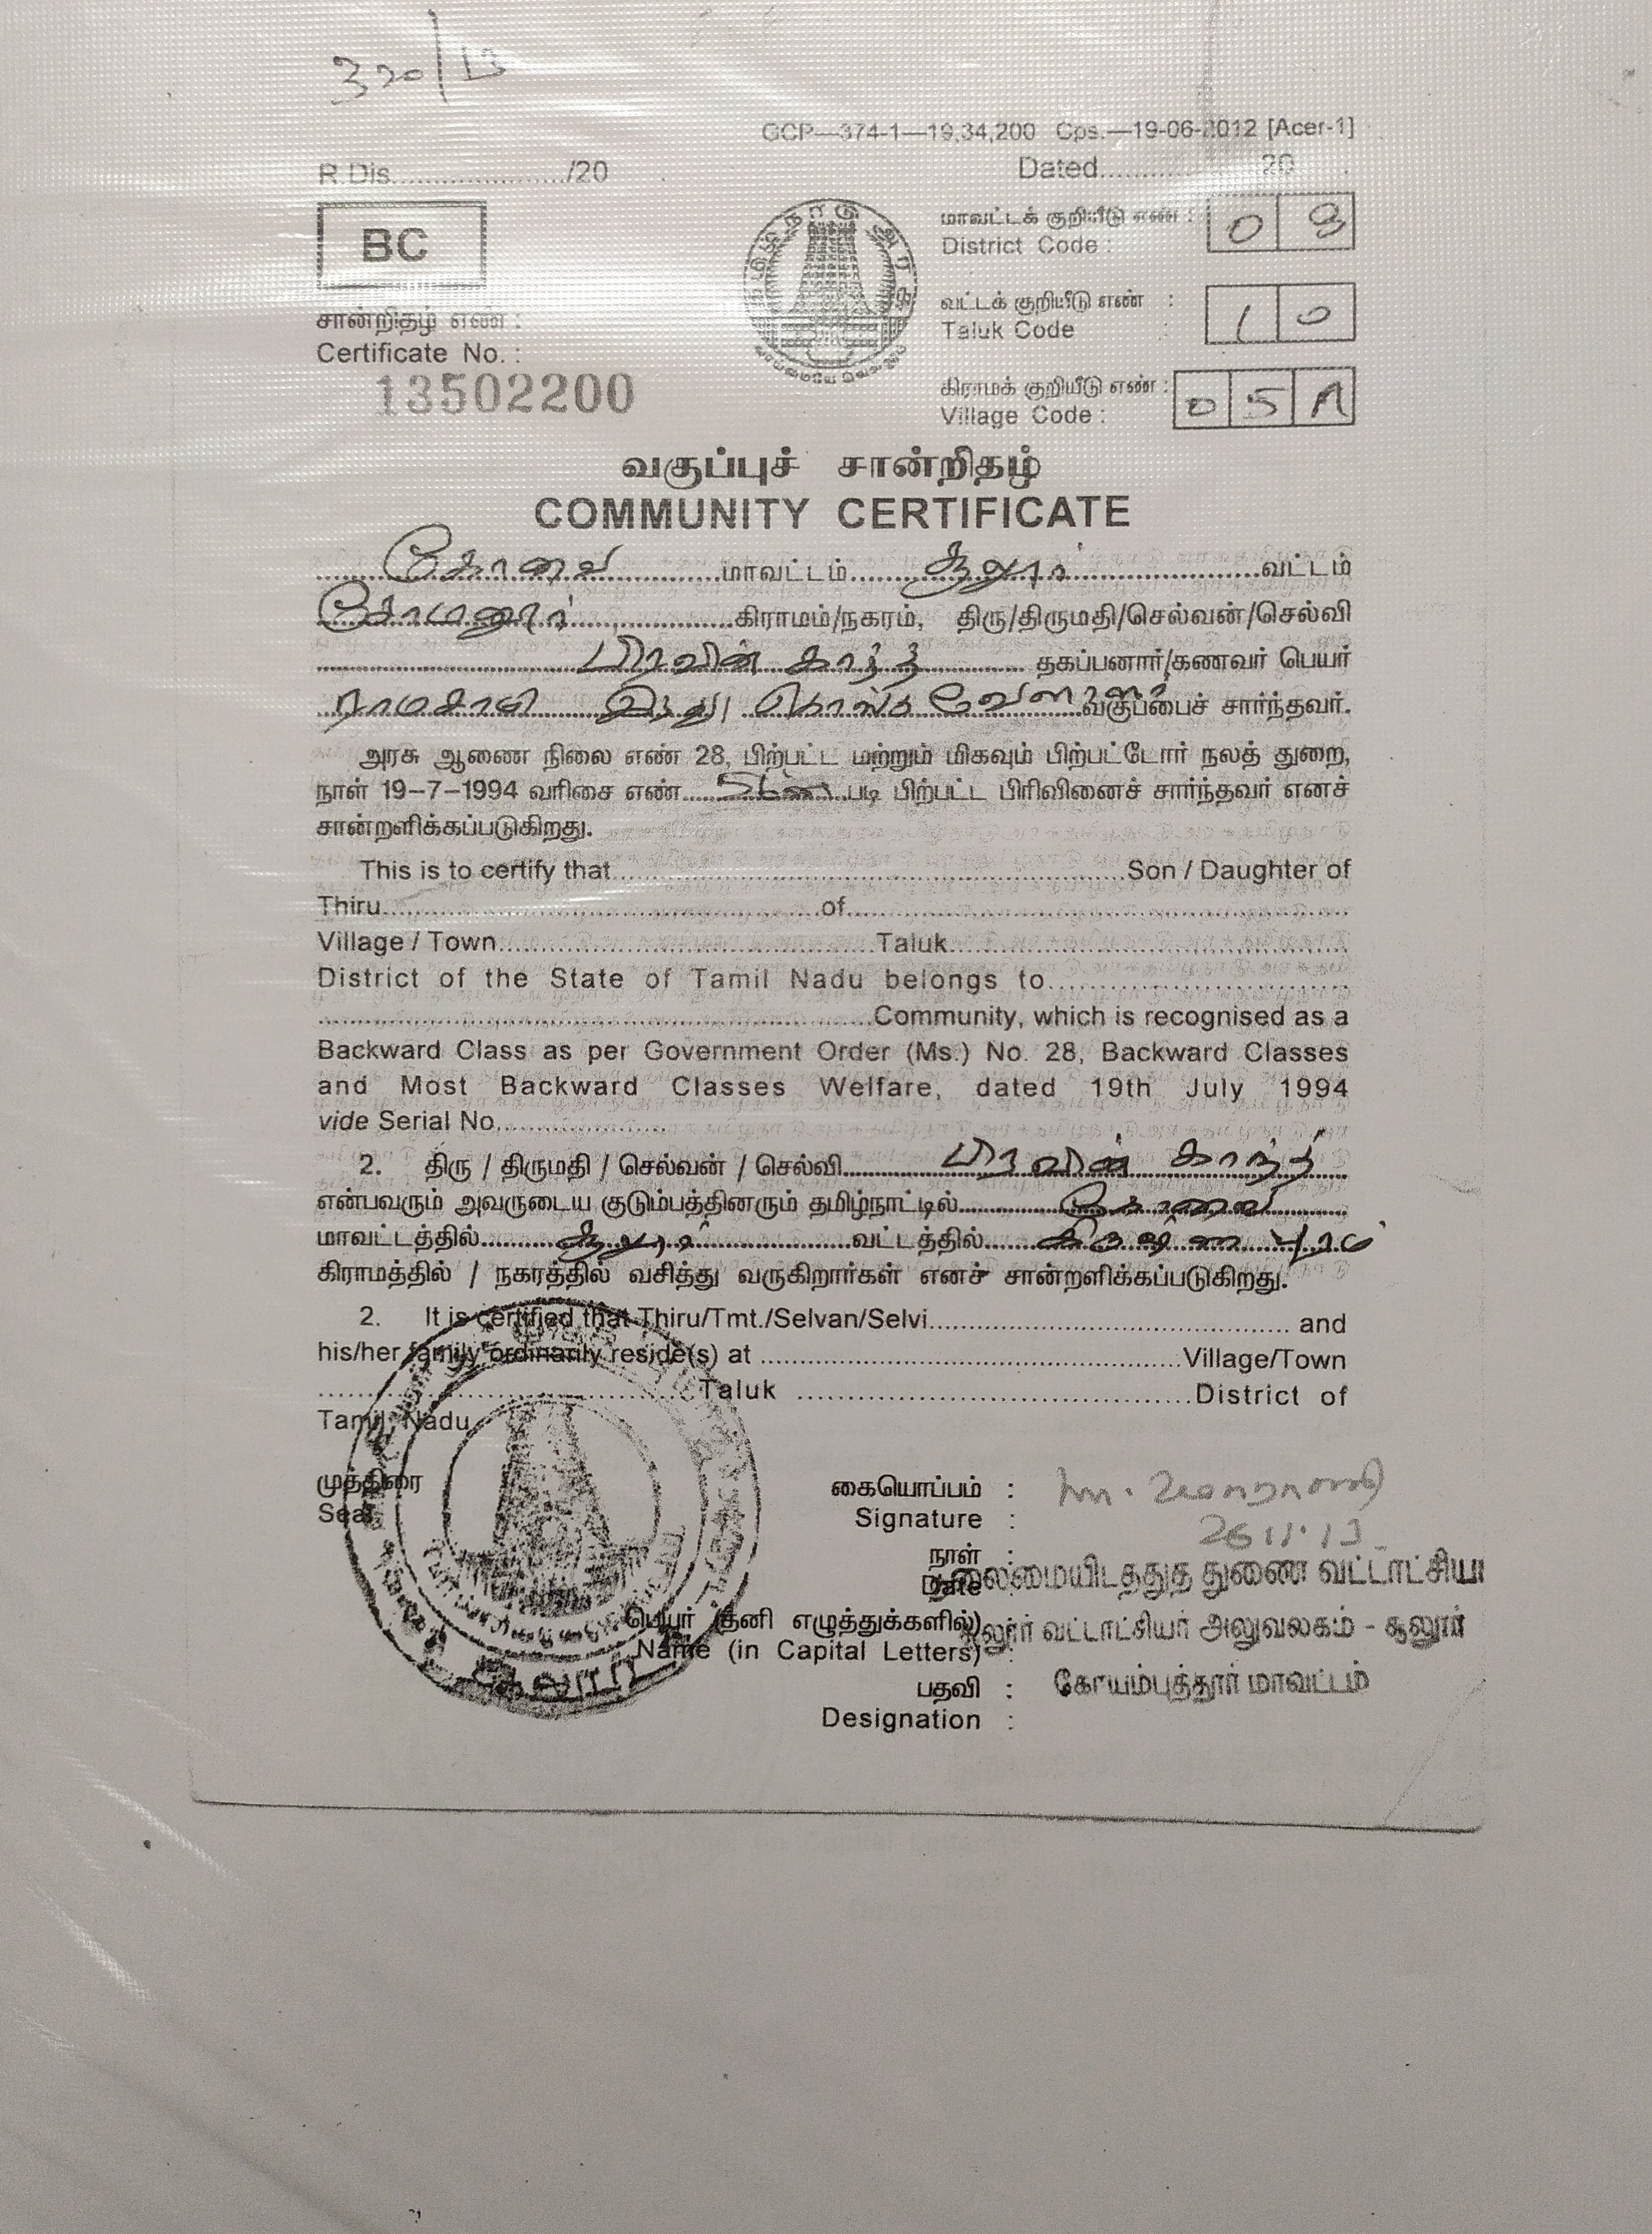 320/13
GCP—374-1—19,34,200 Cps.—19-06-2012 [Acer-1]
R.Dis...................../20 Dated....................20
BC
தமிழ்நாடு அரசு
வாய்மையே வெல்லும்
மாவட்டக் குறியீடு எண் : 0
District Code :
வட்டக் குறியீடு எண் : 1 0
Taluk Code :
சான்றிதழ் எண் :
Certificate No. :
13502200
கிராமக் குறியீடு எண் : 0 5 A
Village Code :
வகுப்புச் சான்றிதழ்
COMMUNITY CERTIFICATE
கோவை மாவட்டம் சூலூர் வட்டம்
சோமனூர் கிராமம்/நகரம், திரு/திருமதி/செல்வன்/செல்வி
பிரவின் காந்த் தகப்பனார்/கணவர் பெயர்
ராமசாமி இந்து கொங்கு வேளாளர் வகுப்பைச் சார்ந்தவர்.
அரசு ஆணை நிலை எண் 28, பிற்பட்ட மற்றும் மிகவும் பிற்பட்டோர் நலத் துறை,
நாள் 19-7-1994 வரிசை எண்.............படி பிற்பட்ட பிரிவினைச் சார்ந்தவர் எனச்
சான்றளிக்கப்படுகிறது.
This is to certify that..............................Son / Daughter of
Thiru..............................of..............................
Village / Town..............................Taluk..............................
District of the State of Tamil Nadu belongs to....................
..............................Community, which is recognised as a
Backward Class as per Government Order (Ms.) No. 28, Backward Classes
and Most Backward Classes Welfare, dated 19th July 1994
vide Serial No....................
2. திரு / திருமதி / செல்வன் / செல்வி பிரவின் காந்த்
என்பவரும் அவருடைய குடும்பத்தினரும் தமிழ்நாட்டில் கோவை
மாவட்டத்தில் சூலூர் வட்டத்தில் கிருஷ்ணாபுரம்
கிராமத்தில் / நகரத்தில் வசித்து வருகிறார்கள் எனச் சான்றளிக்கப்படுகிறது.
2. It is certified that Thiru/Tmt./Selvan/Selvi.............................. and
his/her family ordinarily reside(s) at ..............................Village/Town
..............................Taluk ..............................District of
Tamil Nadu.
முத்திரை
Seal
சூலூர்
கையொப்பம் :
Signature :
26.11.13
நாள் :
Date
தலைமையிடத்துத் துணை வட்டாட்சியர்
பெயர் (தனி எழுத்துக்களில்)
சூலூர் வட்டாட்சியர் அலுவலகம் - சூலூர்
Name (in Capital Letters) :
பதவி : கோயம்புத்தூர் மாவட்டம்
Designation :